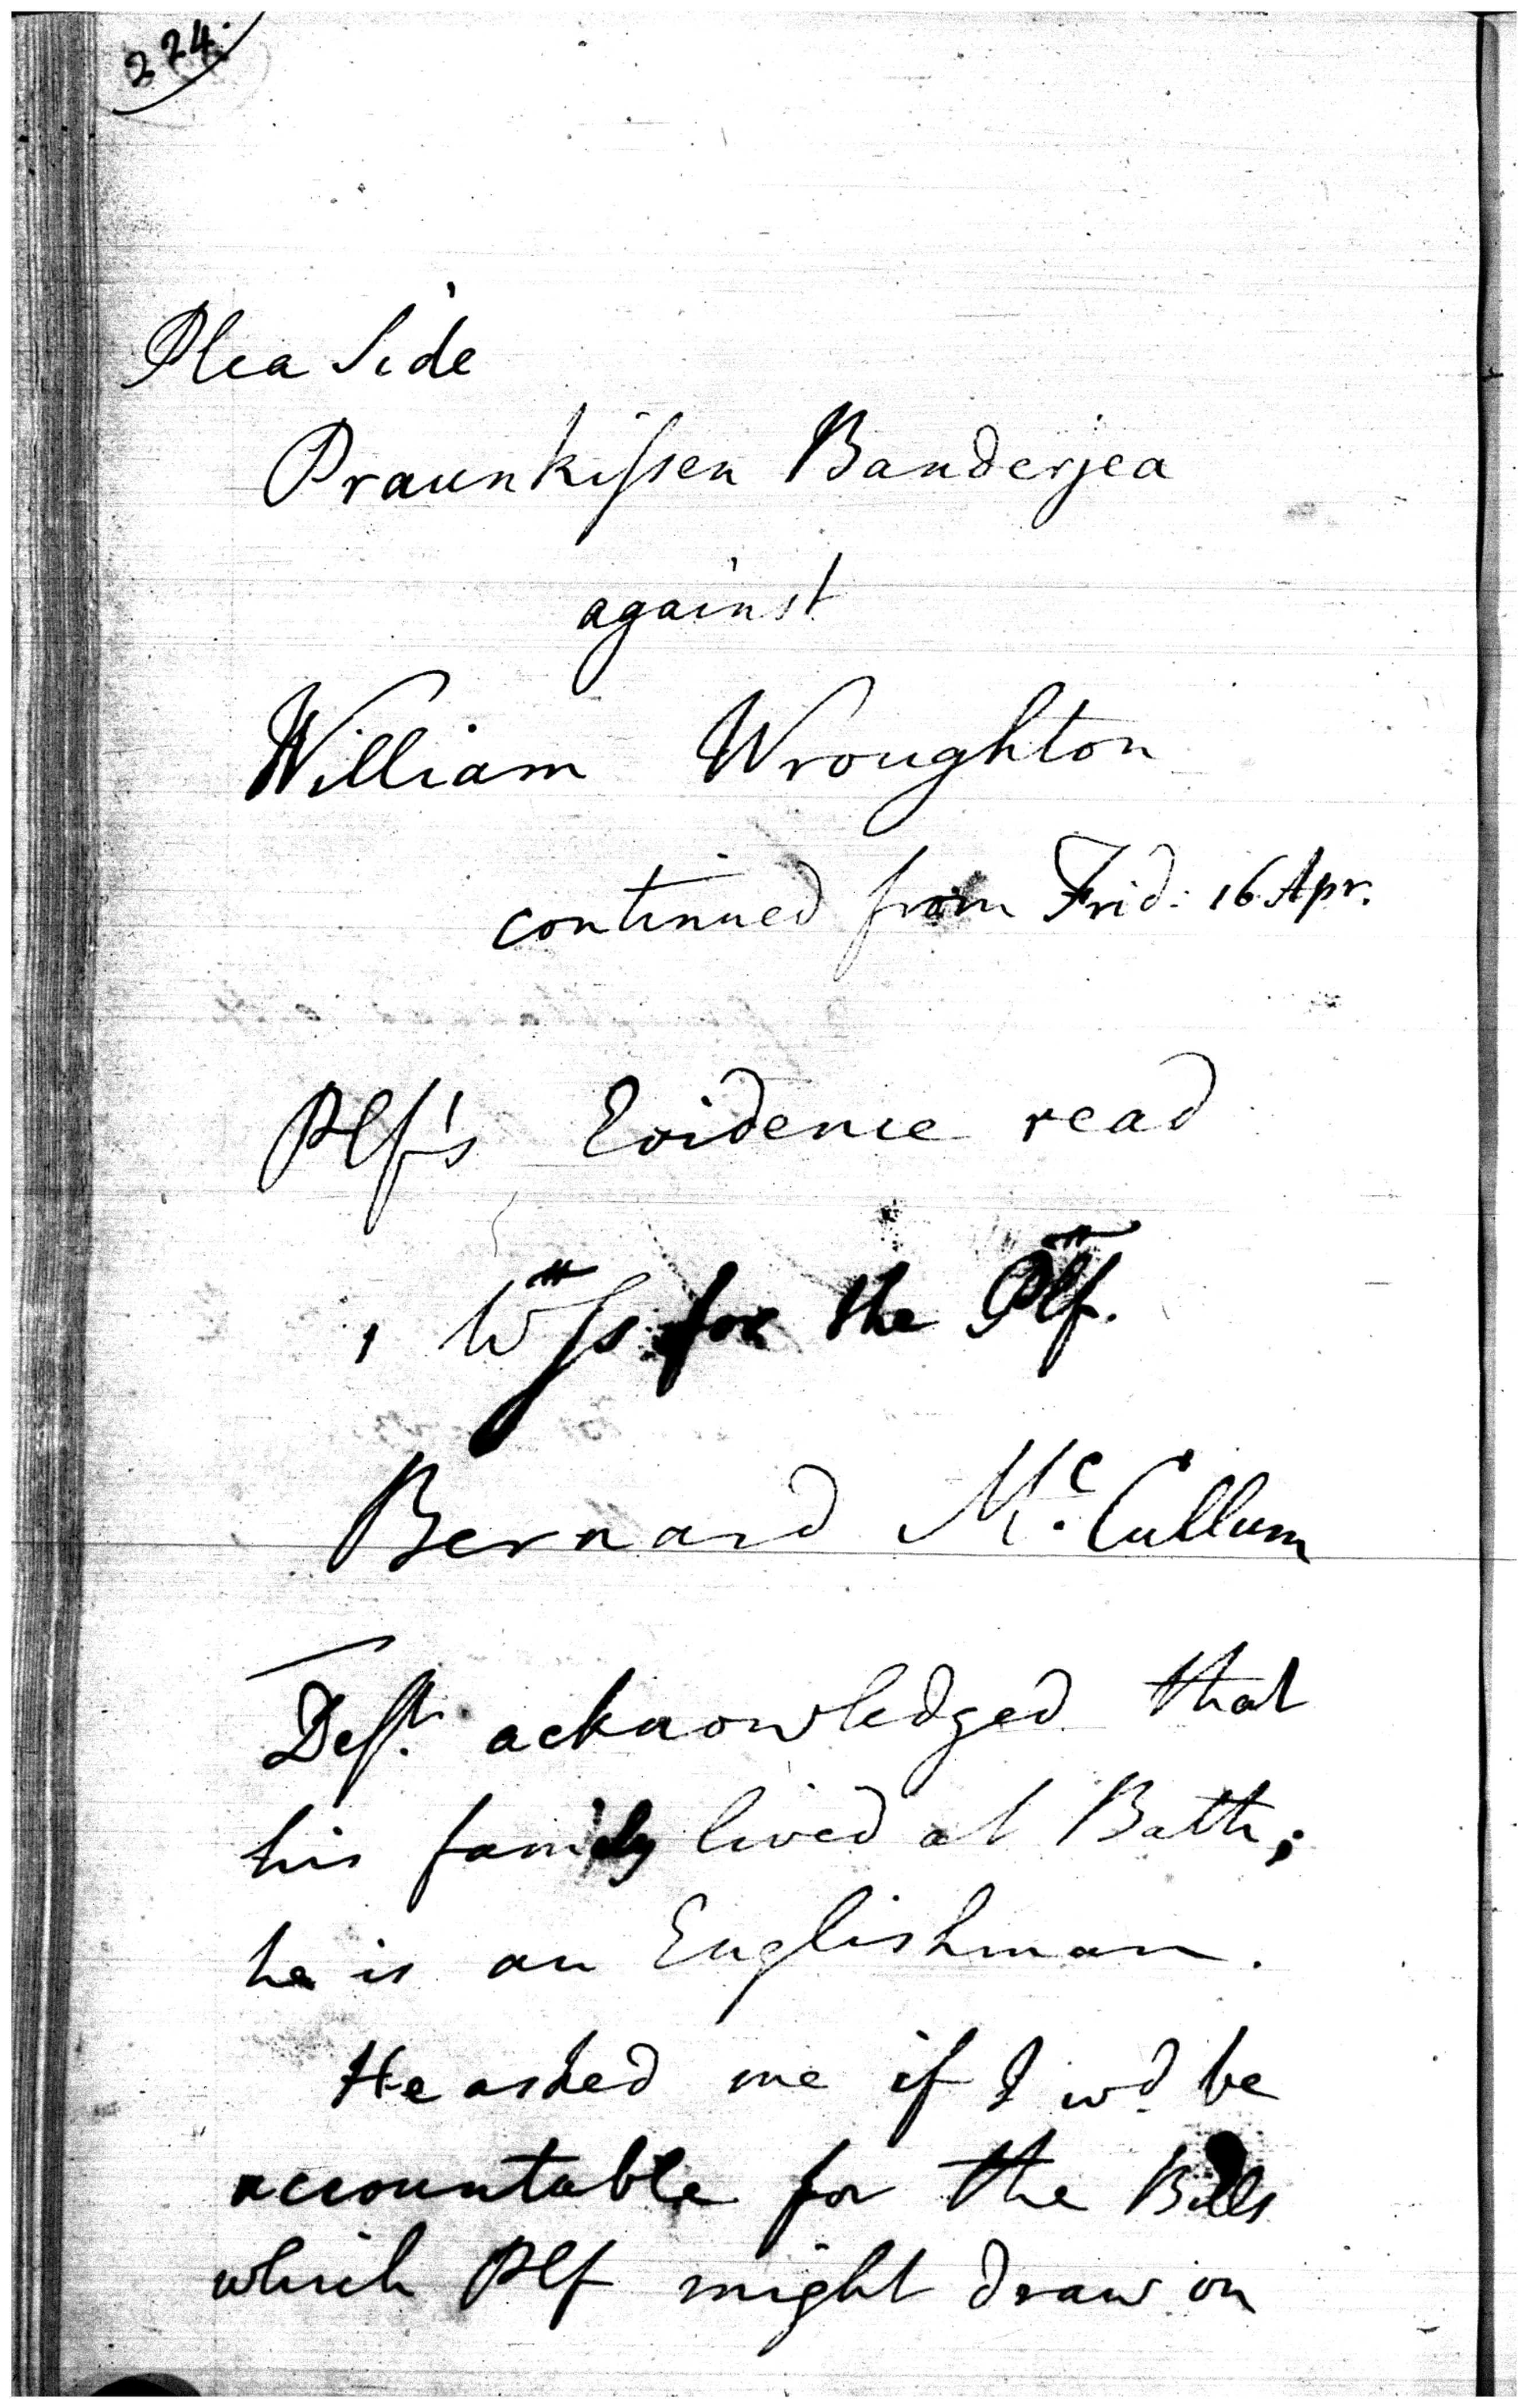 224.
Plea Side
Praunkissen Banderjea
against
William Wroughton
continued from Frid: 16 Apr.
Plf's Evidence read
1 Wss for the Plf.
Bernard Mc. Cullum
Deft. acknowledged that
his family lived at Bath;
he is an Englishman.
He asked me if I wd. be
accountable for the Bills
which Plf might draw on